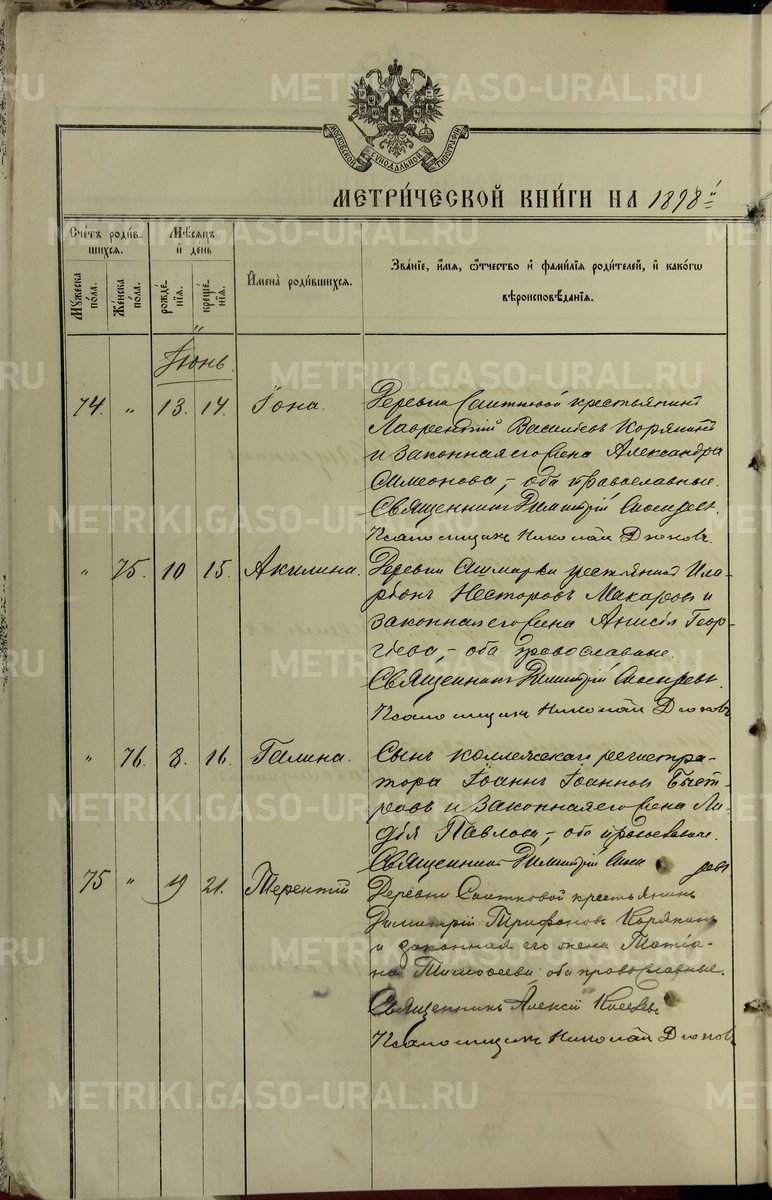 МОСКОВСКОЙ СѴНОДАЛЬНОЙ ТИПОГРАФІИ
МЕТРИ́ЧЕСКОЙ КНИ́ГИ НА 1898й
Сче́тъ роди́вшихся.
Му́жеска по́ла.
Же́нска по́ла.
Мѣ́сяцъ и҆ де́нь
рожде́нїѧ.
креще́нїѧ.
И҆мена̀ роди́вшихсѧ.
Зва́нїе, и҆́мѧ, ѻ҆́тчество и҆ фами́лїѧ роди́телей, и҆ како́гѡ
вѣроисповѣ́данїѧ.
Іюнь.
74. " 13. 14. Іона.
Деревни крестьянинъ
Лаврентій Васильевъ Корякинъ
и законная его жена Александра
Симеонова, – оба православные.
Священникъ Димитрій
Псаломщикъ Николай Дюковъ.
" 75. 10 15. Акилина.
Деревни крестьянинъ Ила-
ріонъ Несторовъ Макаровъ и
законная его жена Анисія Геор-
гіева, – оба православные.
Священникъ Димитрій
Псаломщикъ Николай Дюковъ
" 76. 8. 16. Галина.
Сынъ коллежскаго регистра-
тора Іоаннъ Іоанновъ Быст-
ровъ и законная его жена Ли-
дія Павлова, – оба православные.
Священникъ Димитрій
75 " 19 21. Терентій
Деревни крестьянинъ
Димитрій Трифоновъ Корякинъ
и законная его жена Татіа-
на Тимоѳеева оба православные.
Священникъ Алексій
Псаломщикъ Николай Дюковъ
METRIKI.GASO-URAL.RU